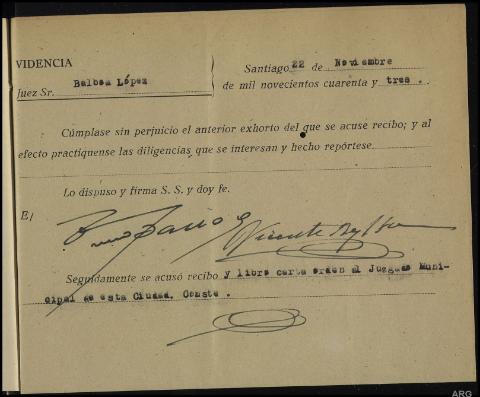 VIDENCIA
Juez Sr. Balboa López
Santiago 22 de Noviembre
de mil novecientos cuarenta y tres .
Cúmplase sin perjuicio el anterior exhorto del que se acuse recibo; y al
efecto practíquense las diligencias que se interesan y hecho repórtese
Lo dispuso y firma S. S. y doy fe.
E/
Vicente
Seguidamente se acusó recibo y libro carta orden al Juzgado Muni-
cipal de esta Ciudad. Conste .
ARG